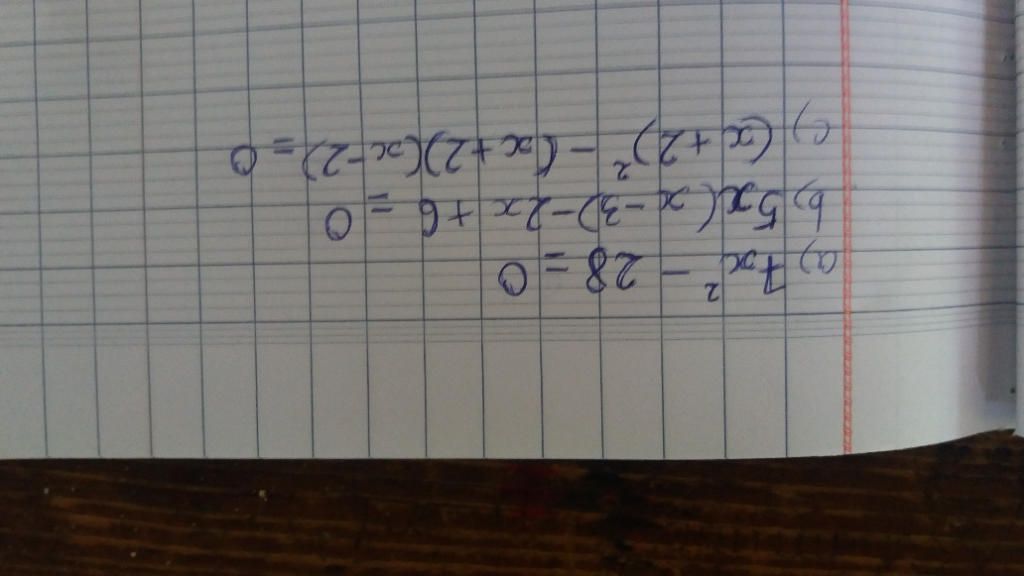 a) 7x² - 28 = 0
b) 5x(x-3)-2x+6 = 0
c) (x+2)² - (x+2)(x-2) = 0